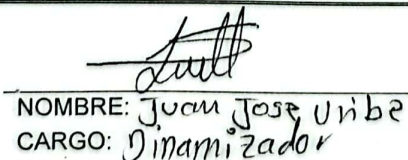 NOMBRE: Juan Jose Uribe
CARGO: Dinamizador